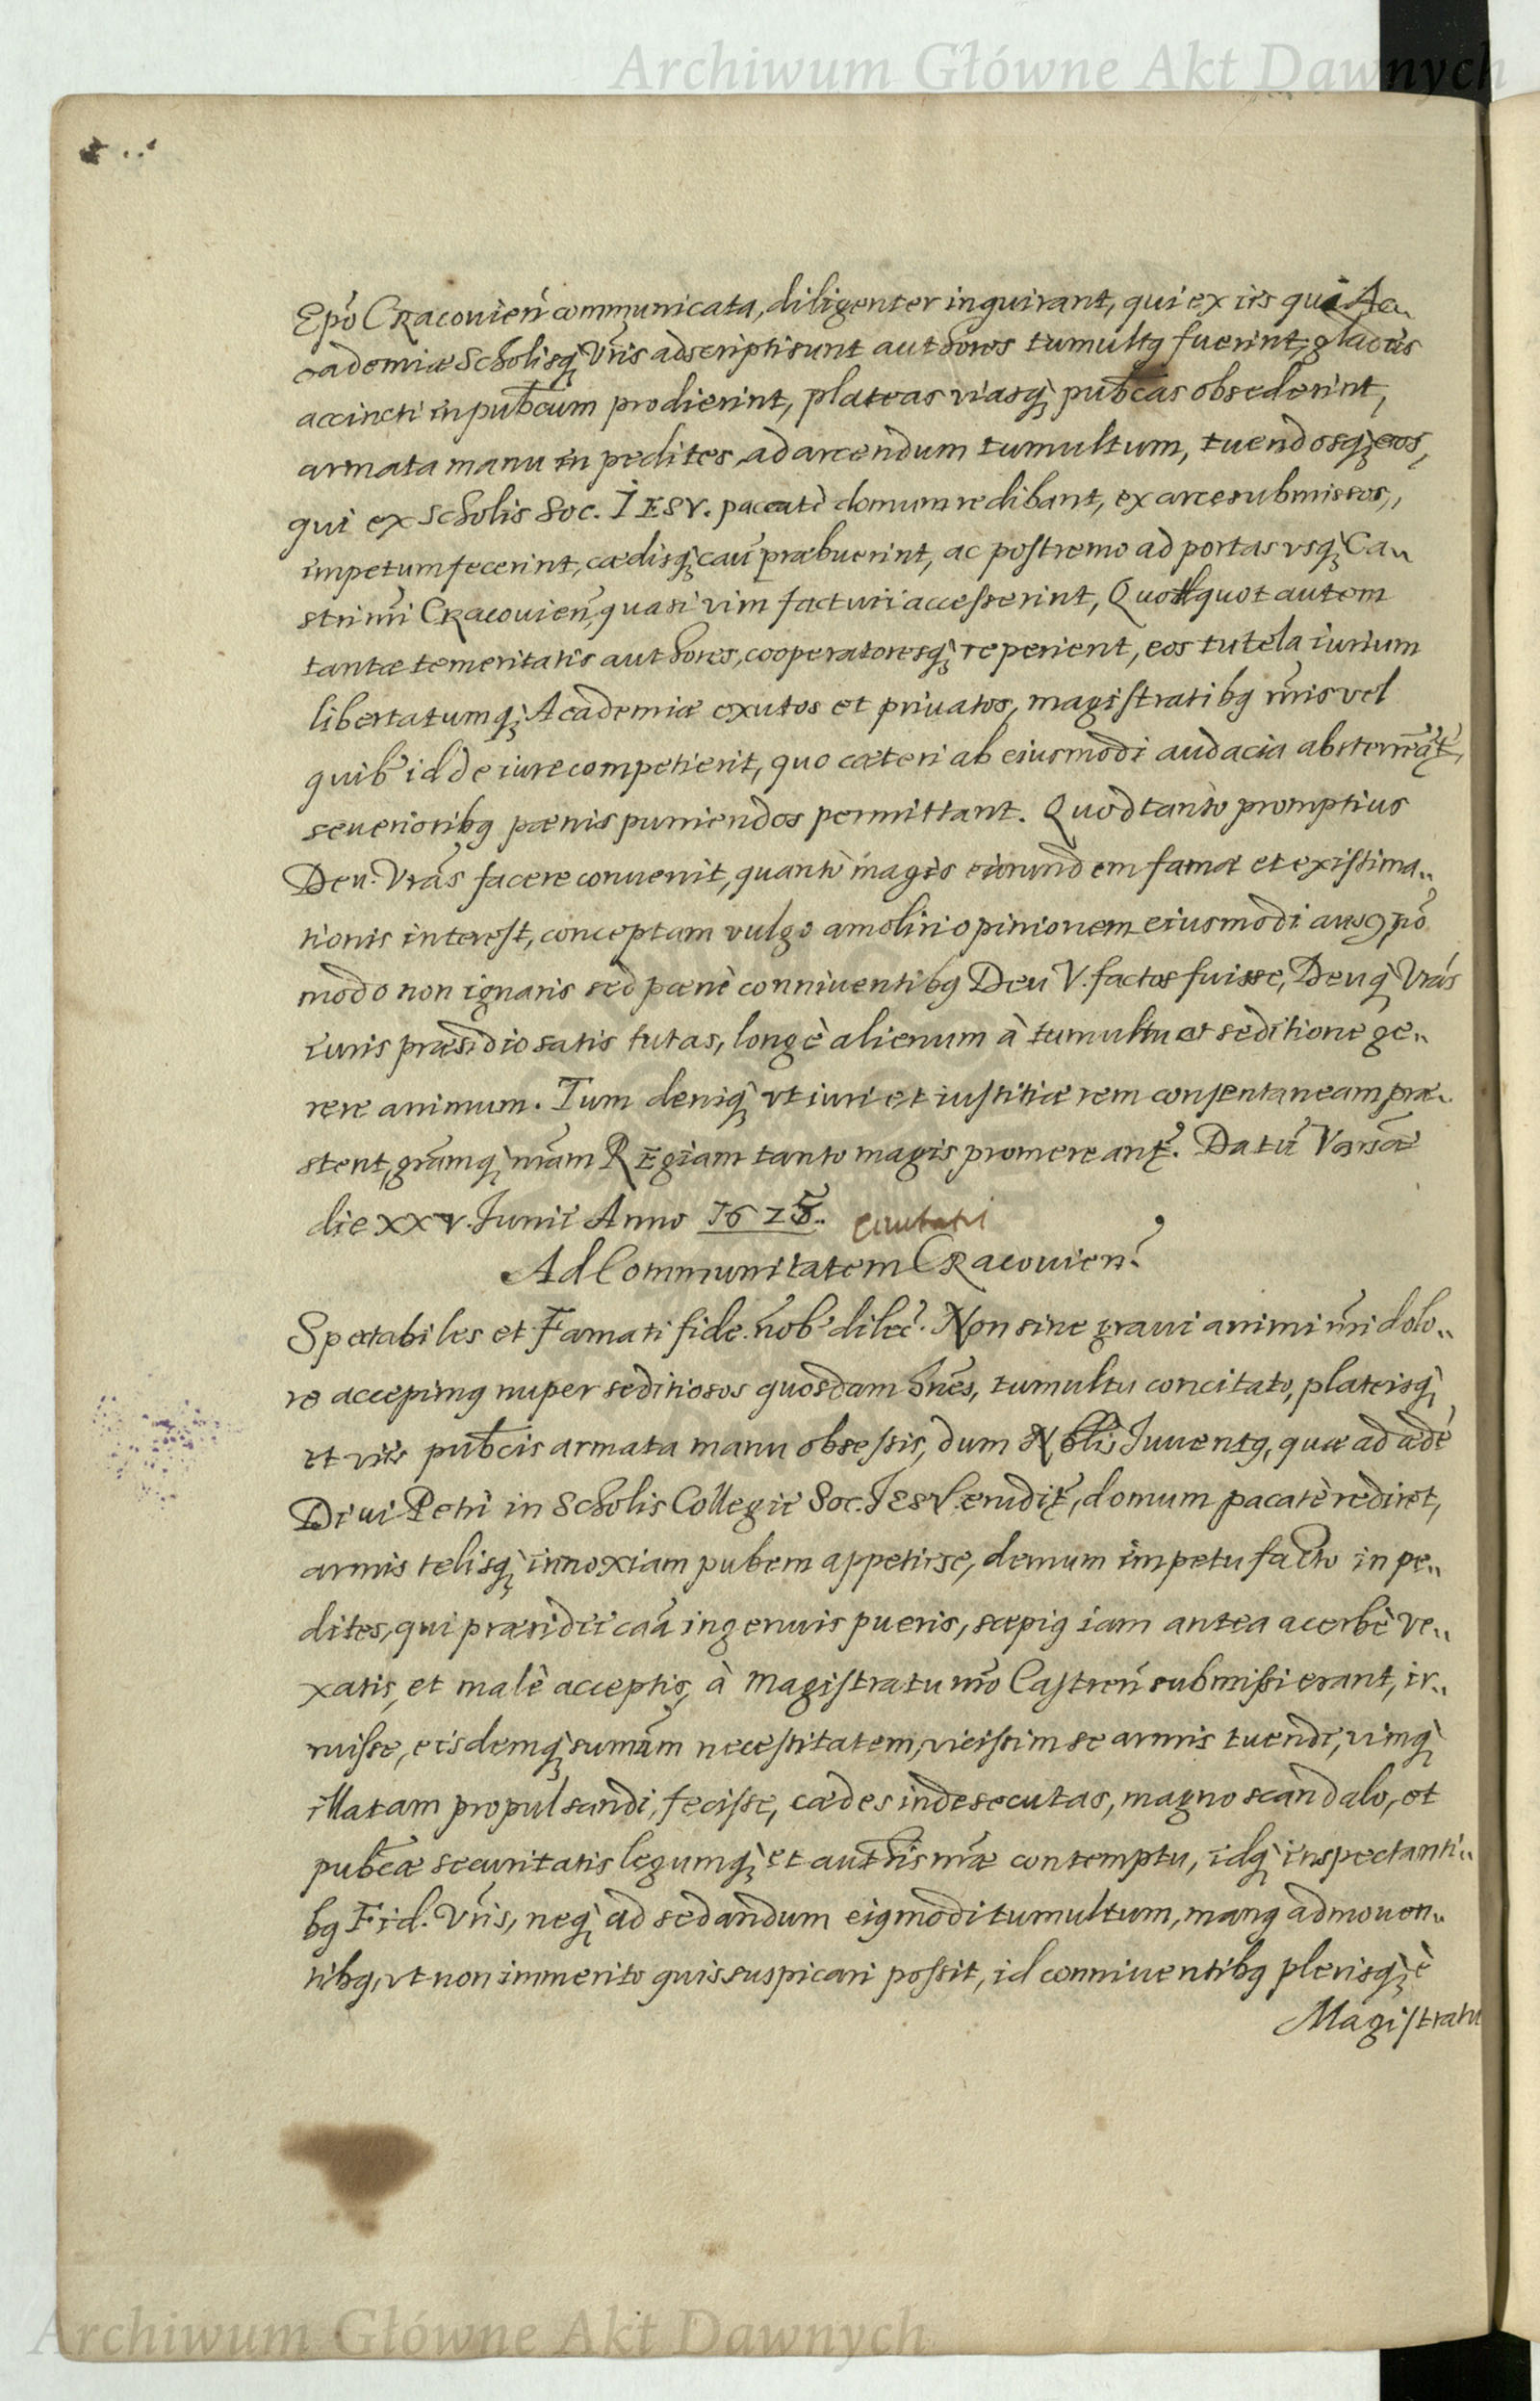 Archiwum Główne Akt Dawnych
Epō Cracovień communicata, diligenter inquirant, qui ex iis qui Ac„
cademiæ Scholisq́ Vrīs adscripti sunt authores tumultꝰ fuerint, gladiis
accincti in pub̄cum prodierint, plateas viasq́ pub̄cas obsederint,
armata manu in pedites, ad arcendum tumultum, tuendosq́ eos,
qui ex Scholis Soc. IESV. pacatè domum redibant, ex arce submissos,
impetum fecerint, cædisq́ caū præbuerint, ac postremo ad portas vsq́ Ca„
stri nrī Cracovień, quasi vim facturi accesserint, Quotquot autem
tantæ temeritatis authores, cooperatoresq́ reperient, eos tutela iurium
libertatumq́ Academiæ exutos et privatos, magistratibꝰ nrīs vel
quib' id de iure competierit, quo cæteri ab eiusmodi audacia absterreāt̃,
severioribꝰ pœnis puniendos permittant. Quod tanto promptius
Dev. Vrās facere convenit, quantò magis earundem famæ et existima„
tionis interest, conceptam vulgo amoliri opinionem eiusmodi ausꝰ nō
modo non ignaris sed pœnè conniventibꝰ Dev V. factos fuisse, Devq́ Vrās
iuris præsidio satis tutas, longè alienum à tumultu et seditione ge„
rere animum. Tum deniq́ vt iuri et iustitiæ rem consentaneam præ„
stent, grāmq́ nrām REgiam tanto magis promereant̃. Datū Varsaē
die xxv. Junii Anno 1625.
Civitati
Ad Communitatem Cracovień.
Spectabiles et Famati fide. nōb' dilec̄. Non sine gravi animi nrī dolo„
re accepimꝰ nuper seditiosos quosdam hōnes, tumultu concitato, plateisq́
et viis pub̄cis armata manu obsessis, dum Nob̄lis Juventꝰ, quæ ad ædē
Divi Petri in Scholis Collegii Soc. IESV. erudit̃, domum pacatè rediret,
armis telisq́ innoxiam pubem appetiisse, demum impetu facto in pe„
dites, qui præsidii caā ingenuis pueris, sæpiꝰ iam antea acerbè ve„
xatis, et malè acceptis, à Magistratu nrō Castreń submissi erant, ir„
ruisse, eisdemq́ sum̄am necessitatem, vicissim se armis tuendi, vimq́
illatam propulsandi, fecisse, cædes inde secutas, magno scandalo, et
pub̄cæ securitatis legumq́ et auth̄ris nrāe contemptu, idq́ inspectanti„
bꝰ Fid. Vrīs, neq́ ad sedandum eiꝰmodi tumultum, manꝰ admoven„
tibꝰ, vt non immerito quis suspicari possit, id conniventibꝰ plerisq́ è
Magistratu
Archiwum Główne Akt Dawnych